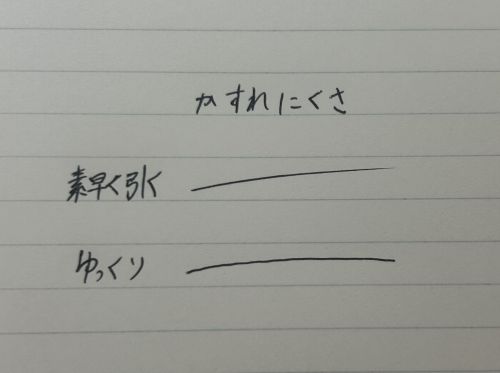 かすれにくさ
素早く引く
ゆっくり